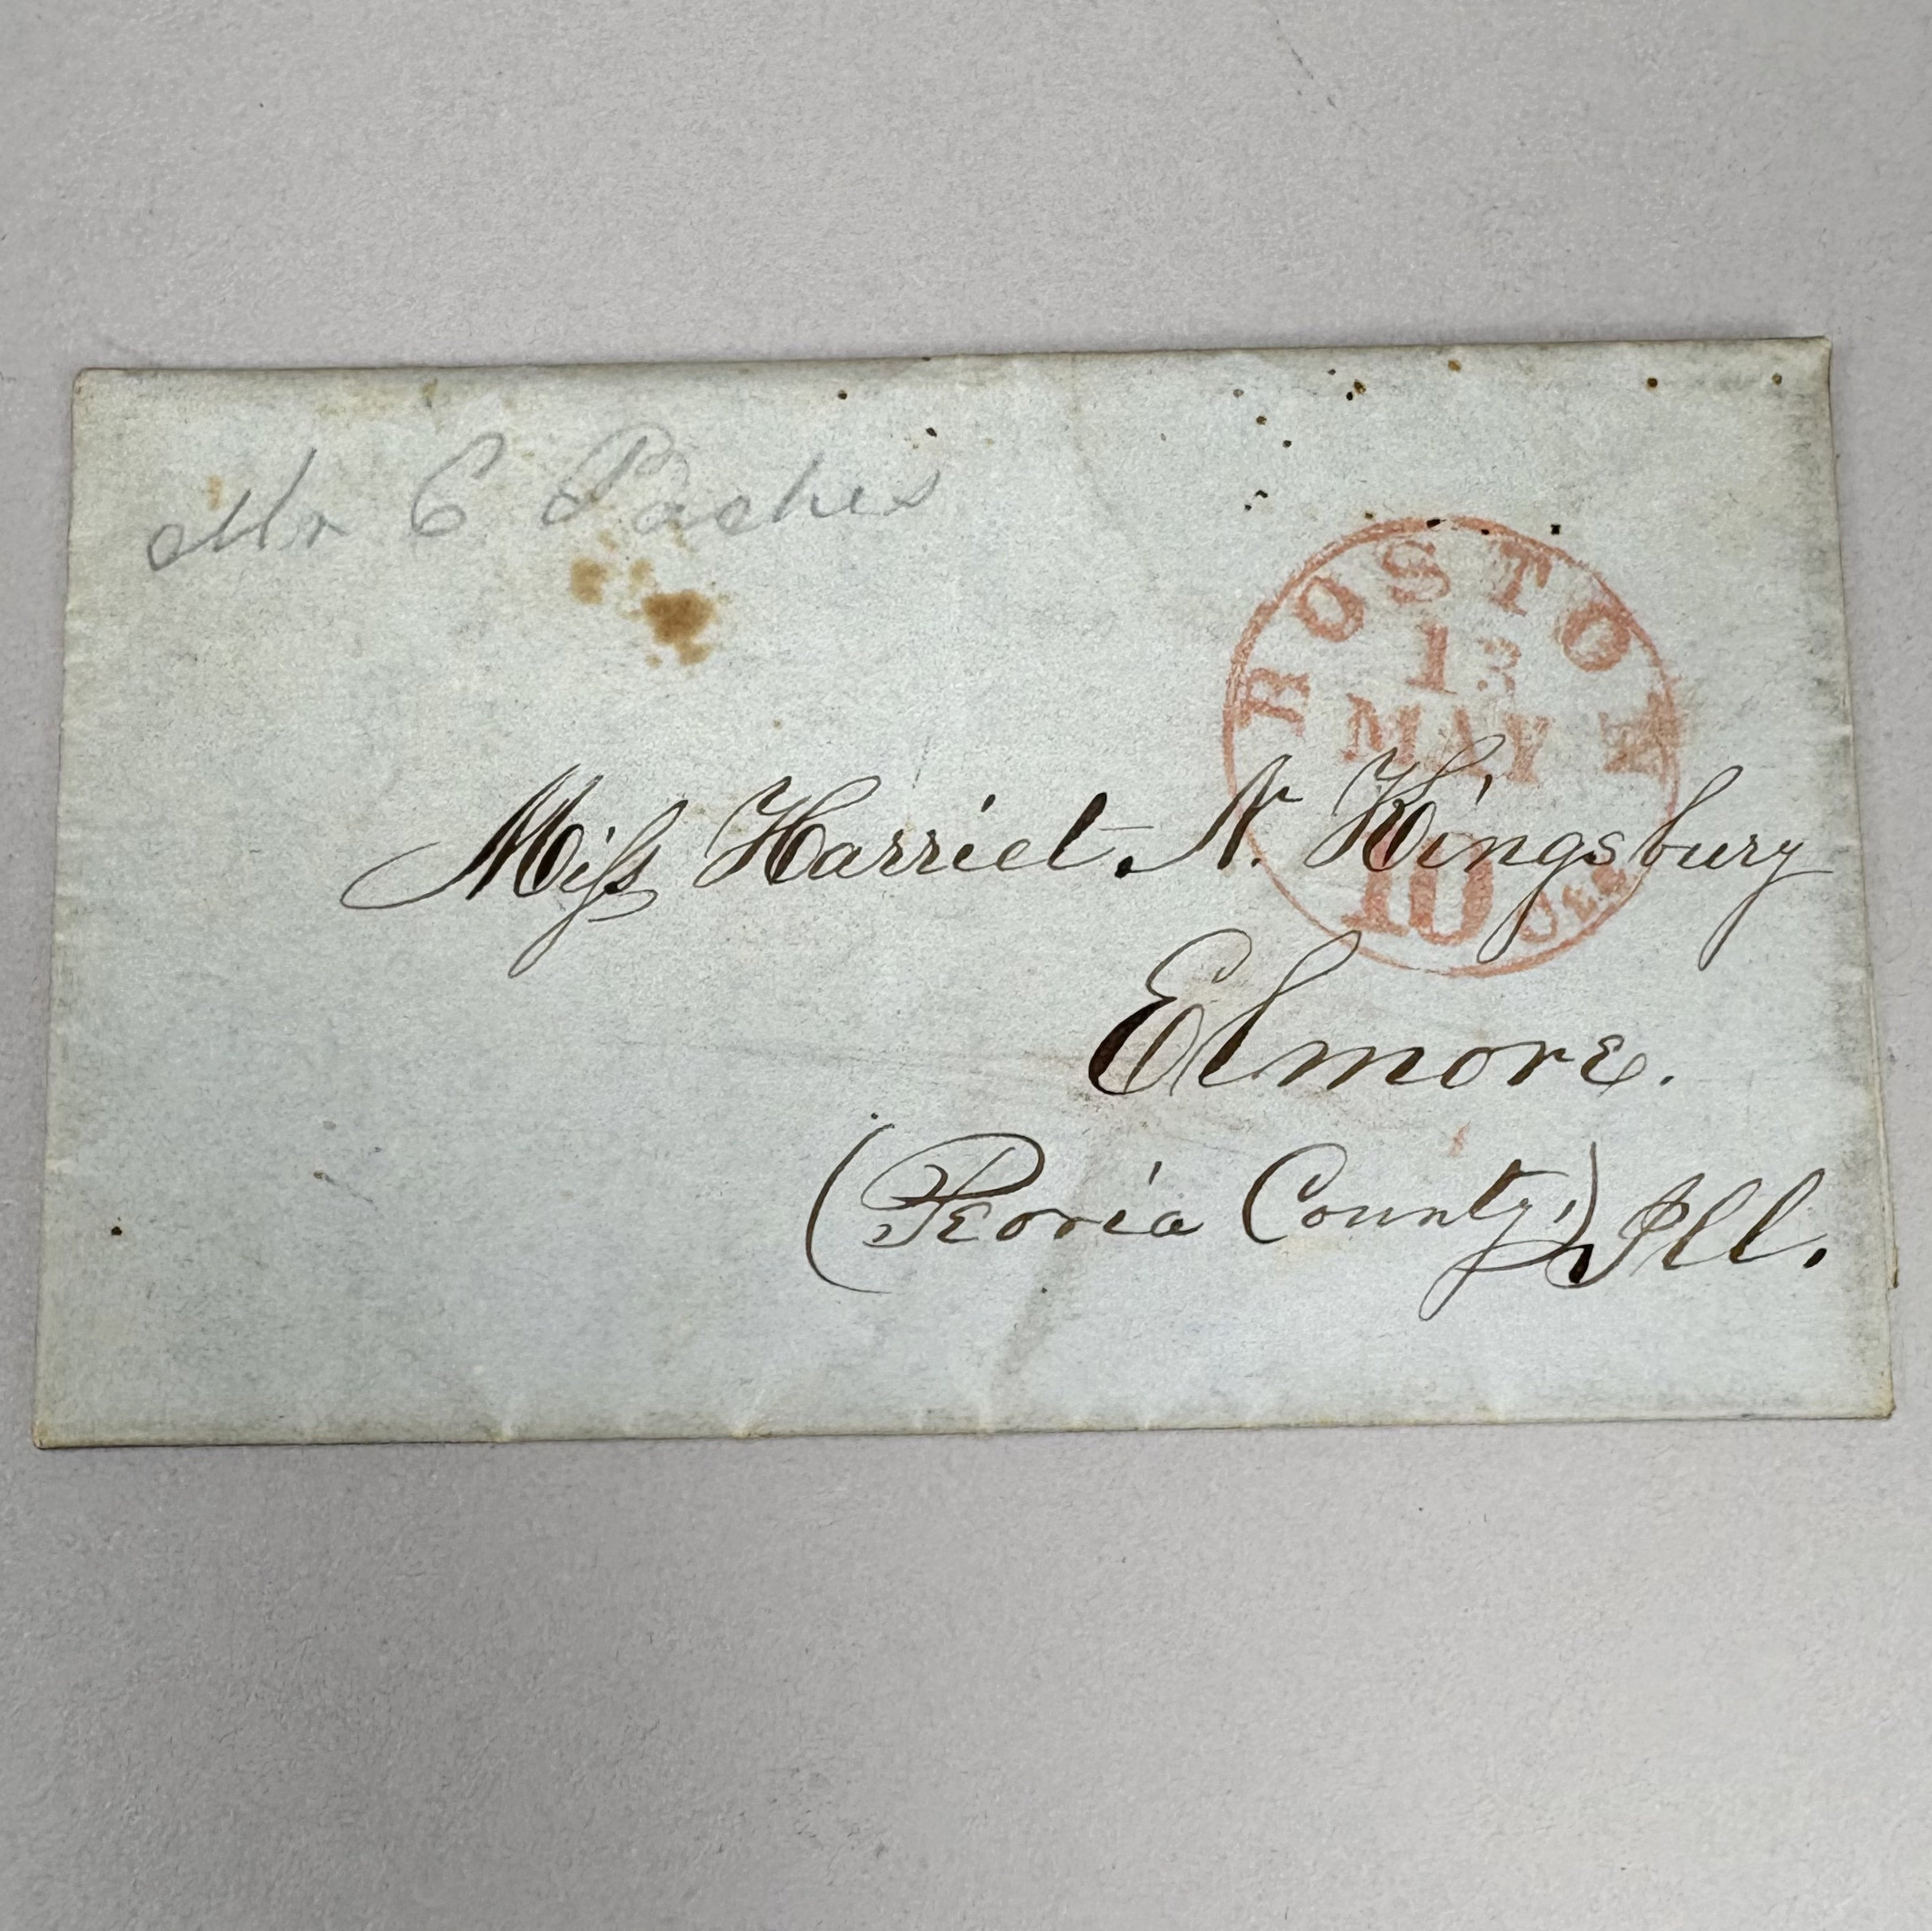 Mr C
BOSTON
13
MAY
10 cts
Miss Harriet. N. Kingsbury
Elmore.
(Peoria County,) Ill.